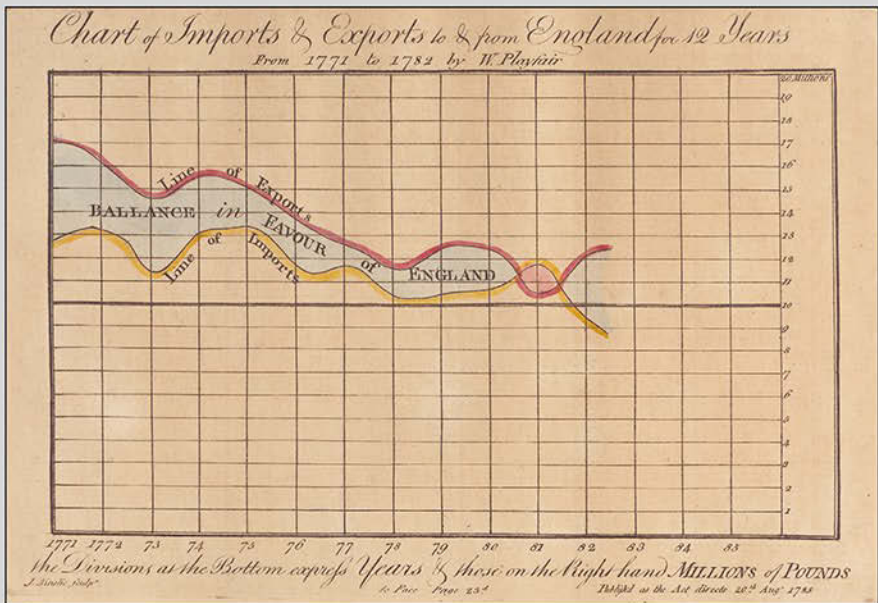 Chart of Imports & Exports to & from England for 12 Years
From 1771 to 1782 by W. Playfair
20 Millions
19
18
17
16
15
14
13
12
11
10
9
8
7
6
5
4
3
2
1
Line of Exports
BALLANCE in FAVOUR of ENGLAND
Line of Imports
1771 1772 73 74 75 76 77 78 79 80 81 82 83 84 85
the Divisions at the Bottom express Years & those on the Right hand MILLIONS of POUNDS
J. Ainslie Sculpt.
to Face Page 23d
Publish'd as the Act directs 20th Augt 1785